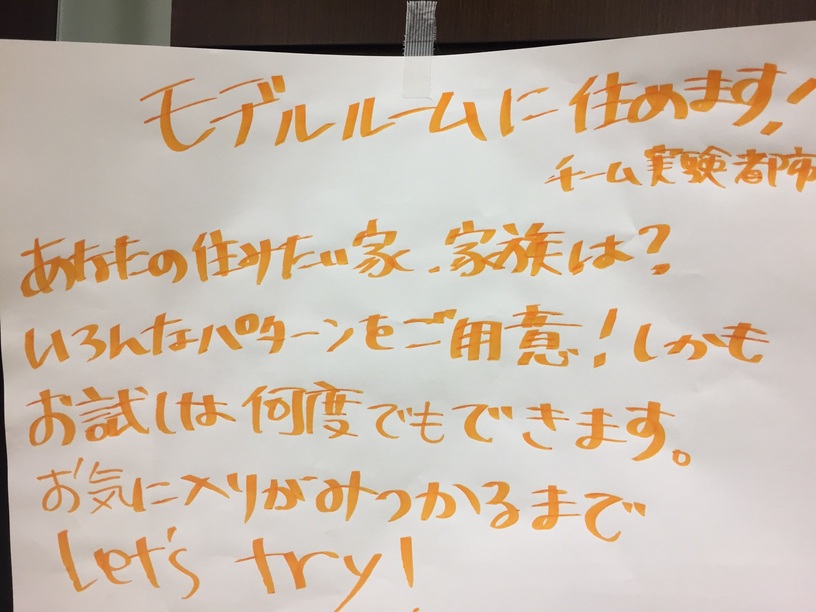 モデルルームに住めます!
チーム実験都市
あなたの住みたい家、家族は?
いろんなパターンをご用意!しかも
お試しは何度でもできます。
お気に入りがみつかるまで
Let's try!